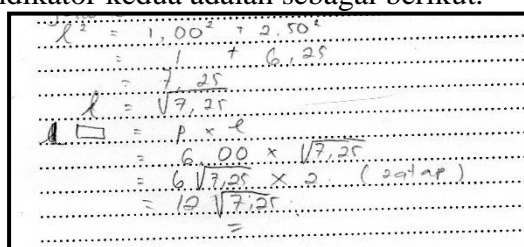 dikator kedua adalah sebagai berikut:
l² = 1,00² + 2,50²
= 1 + 6,25
= 7,25
l = √7,25
L □ = p × l
= 6,00 × √7,25
= 6√7,25 × 2 (2 atap)
= 12 √7,25
=